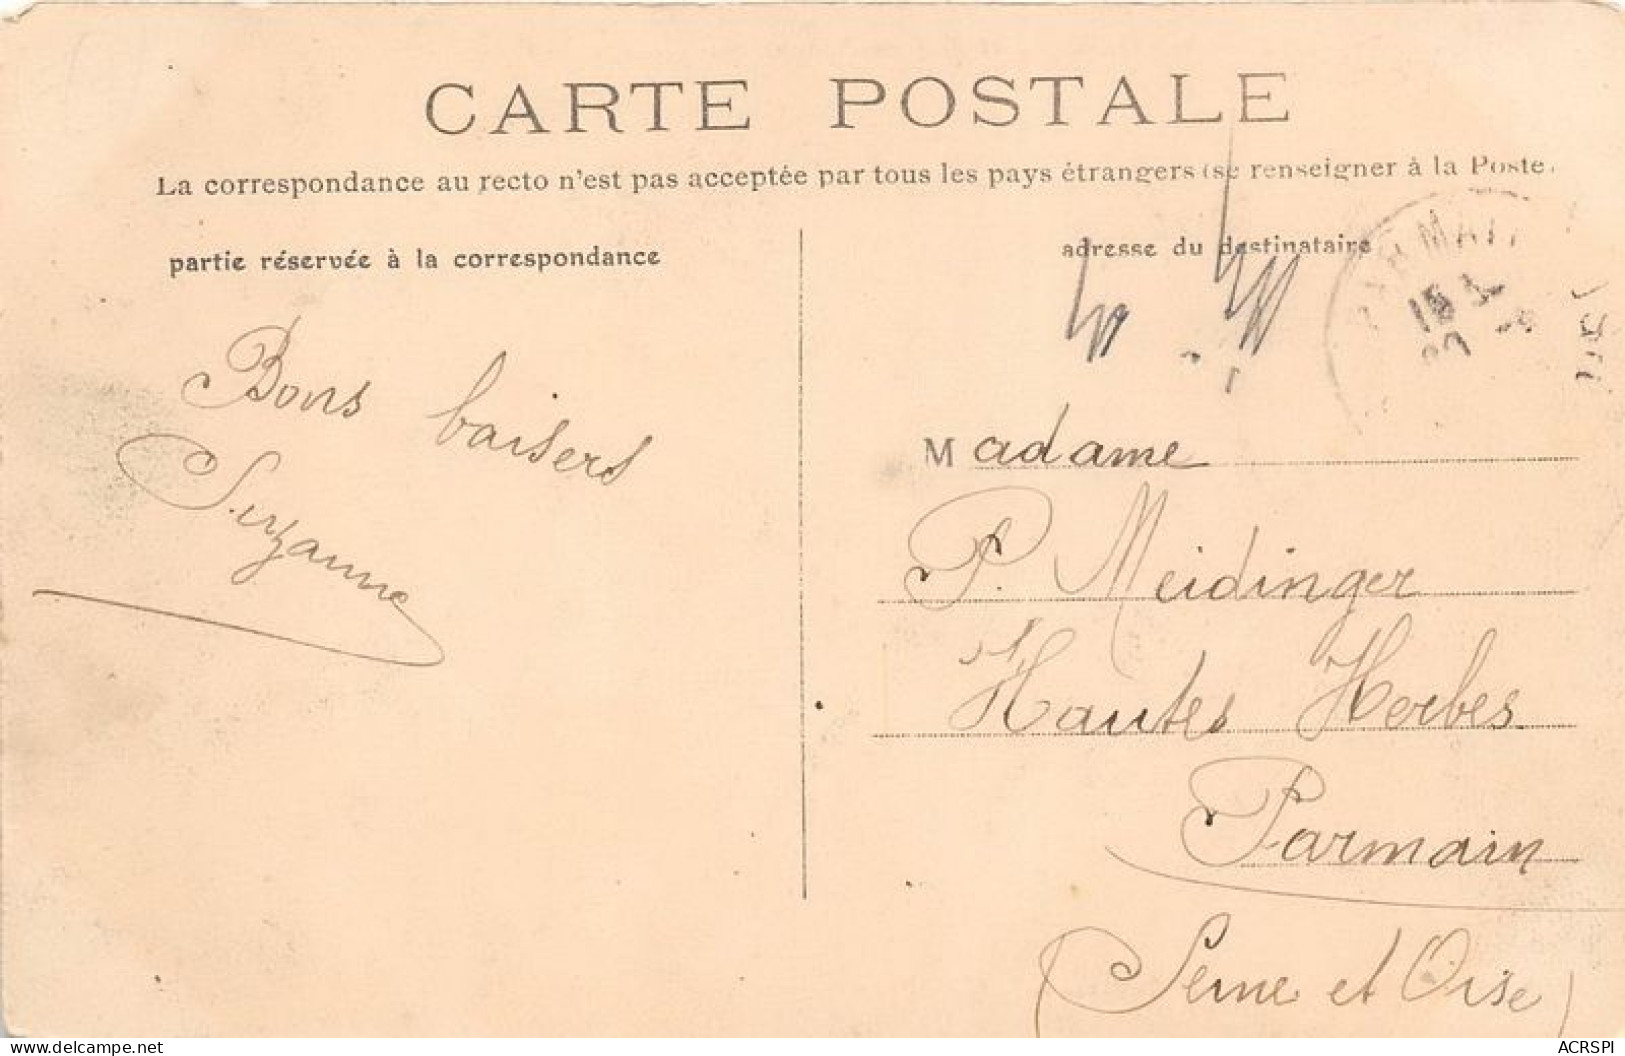 CARTE POSTALE
La correspondance au recto n'est pas acceptée par tous les pays étrangers (se renseigner à la Poste.
partie réservée à la correspondance
adresse du destinataire
Bons baisers
Suzanne
Madame
P. Meidinger
Hautes Herbes
Parmain
(Seine et Oise)
PARMAIN
delcampe.net
ACRSPI